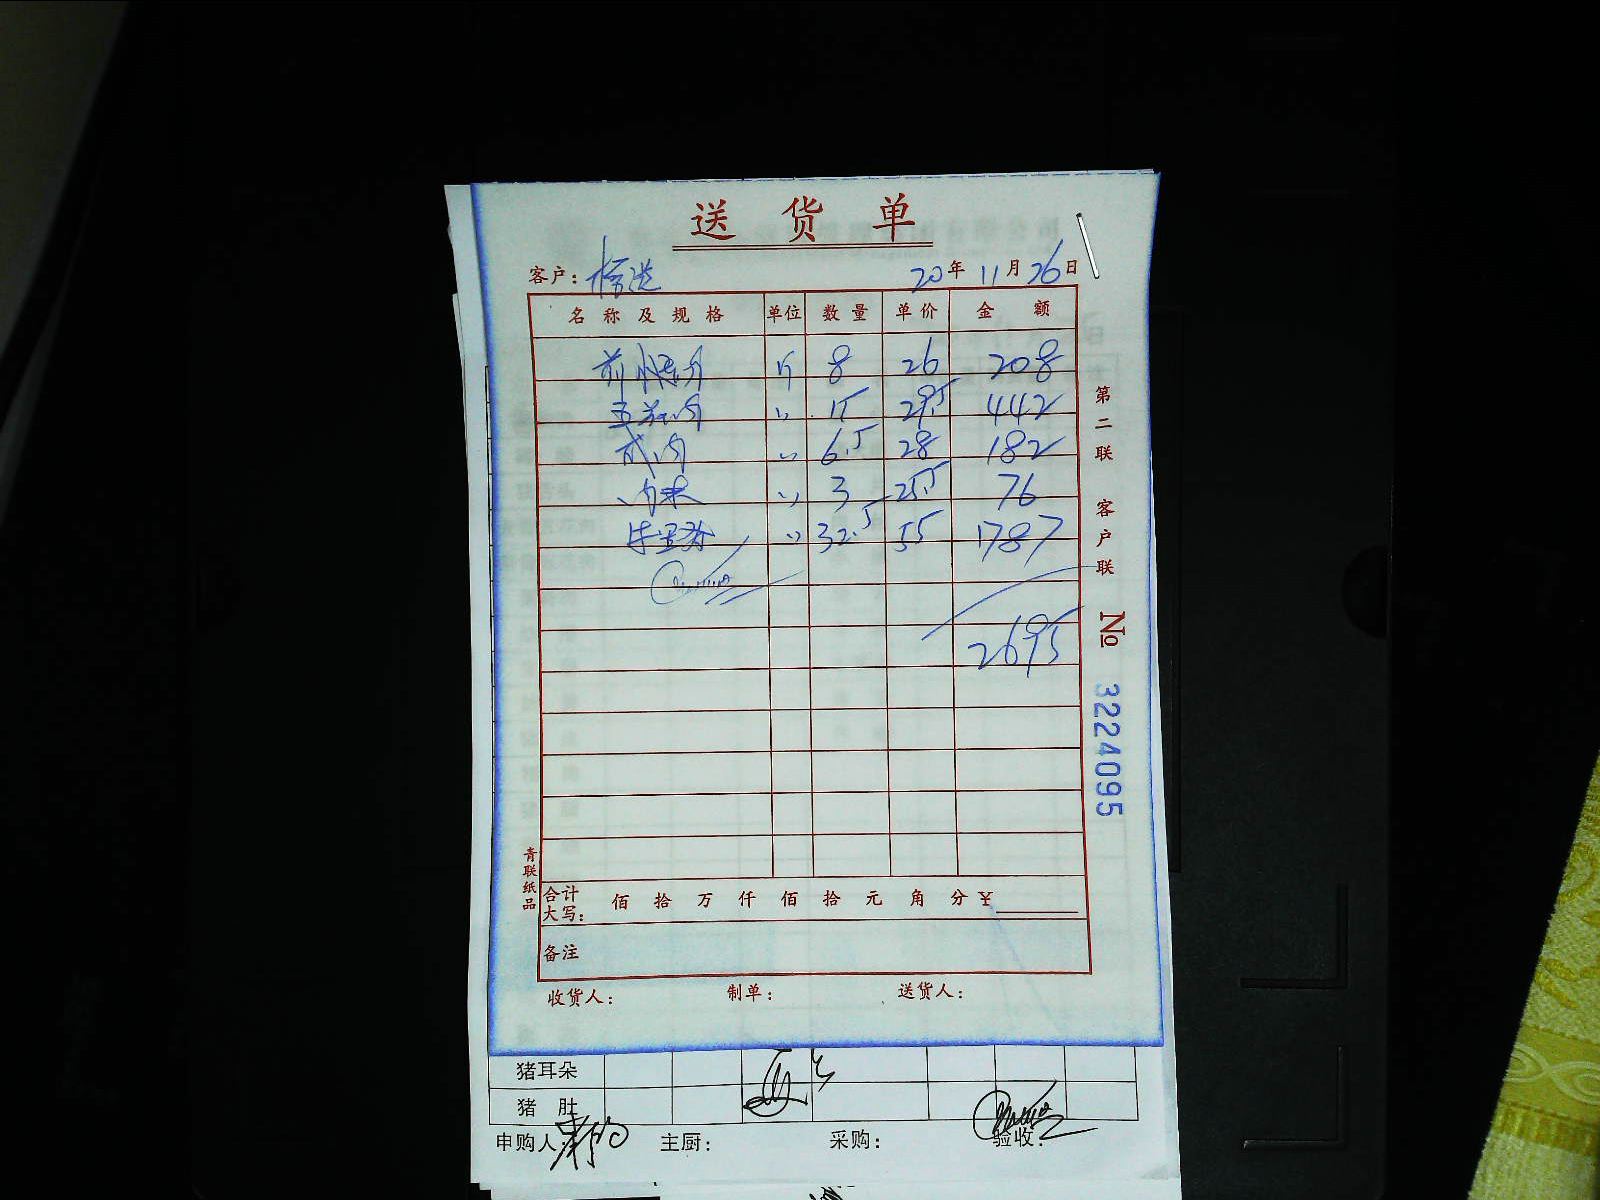 送货单
客户： 20年11月26日
名称及规格 单位 数量 单价 金额
斤 8 26 208
五花肉 〃 15 29.5 442
肉 〃 6.5 28 182
肉末 〃 3 25.5 76
牛 〃 32.5 55 1787
2695
第二联 客户联
No 3224095
青联纸品
合计大写： 佰 拾 万 仟 佰 拾 元 角 分 ¥
备注
收货人： 制单： 送货人：
猪耳朵
猪肚
申购人： 主厨： 采购： 验收：